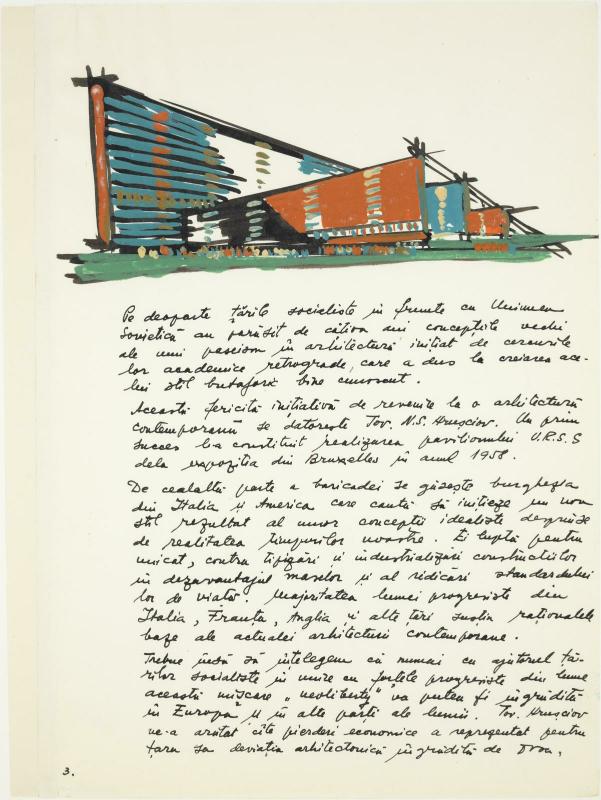 Pe deoparte țările socialiste în frunte cu Uniunea
Sovietică au părăsit de câtiva ani conceptiile vechi
ale unui paseism în arhitectură inițiat de cercurile
lor academice retrograde, care a dus la creiarea ace-
lui stil butaforic bine cunoscut.
Această fericită inițiativă de revenire la o arhitectură
contemporană se datorește Tov. N.S. Hrusciov. Un prim
succes l-a constituit realizarea pavilionului U.R.S.S
dela expozitia din Bruxelles în anul 1958.
De cealaltă parte a baricadei se găsește burghezia
din Italia și America care caută să initieze un nou
stil rezultat al unor conceptii idealiste desprinse
de realitatea timpurilor noastre. Ei luptă pentru
unicat, contra tipizări și industrializări constructiilor
în dezavantajul maselor și al ridicări standardului
lor de viată. Majoritatea lumei progresiste din
Italia, Franta, Anglia și alte țări sustin raționalele
baze ale actualei arhitecturi contemporane.
Trebue însă să înțelegem că numai cu ajutorul ță-
rilor socialiste în unire cu fortele progresiste din lume
această mișcare „neoliberty" va putea fi îngrădită
în Europa și în alte părti ale lumii. Tov. Hrusciov
ne-a arătat cîte pierderi economice a reprezentat pentru
țara sa deviatia arhitectonică îngrădită de
3.